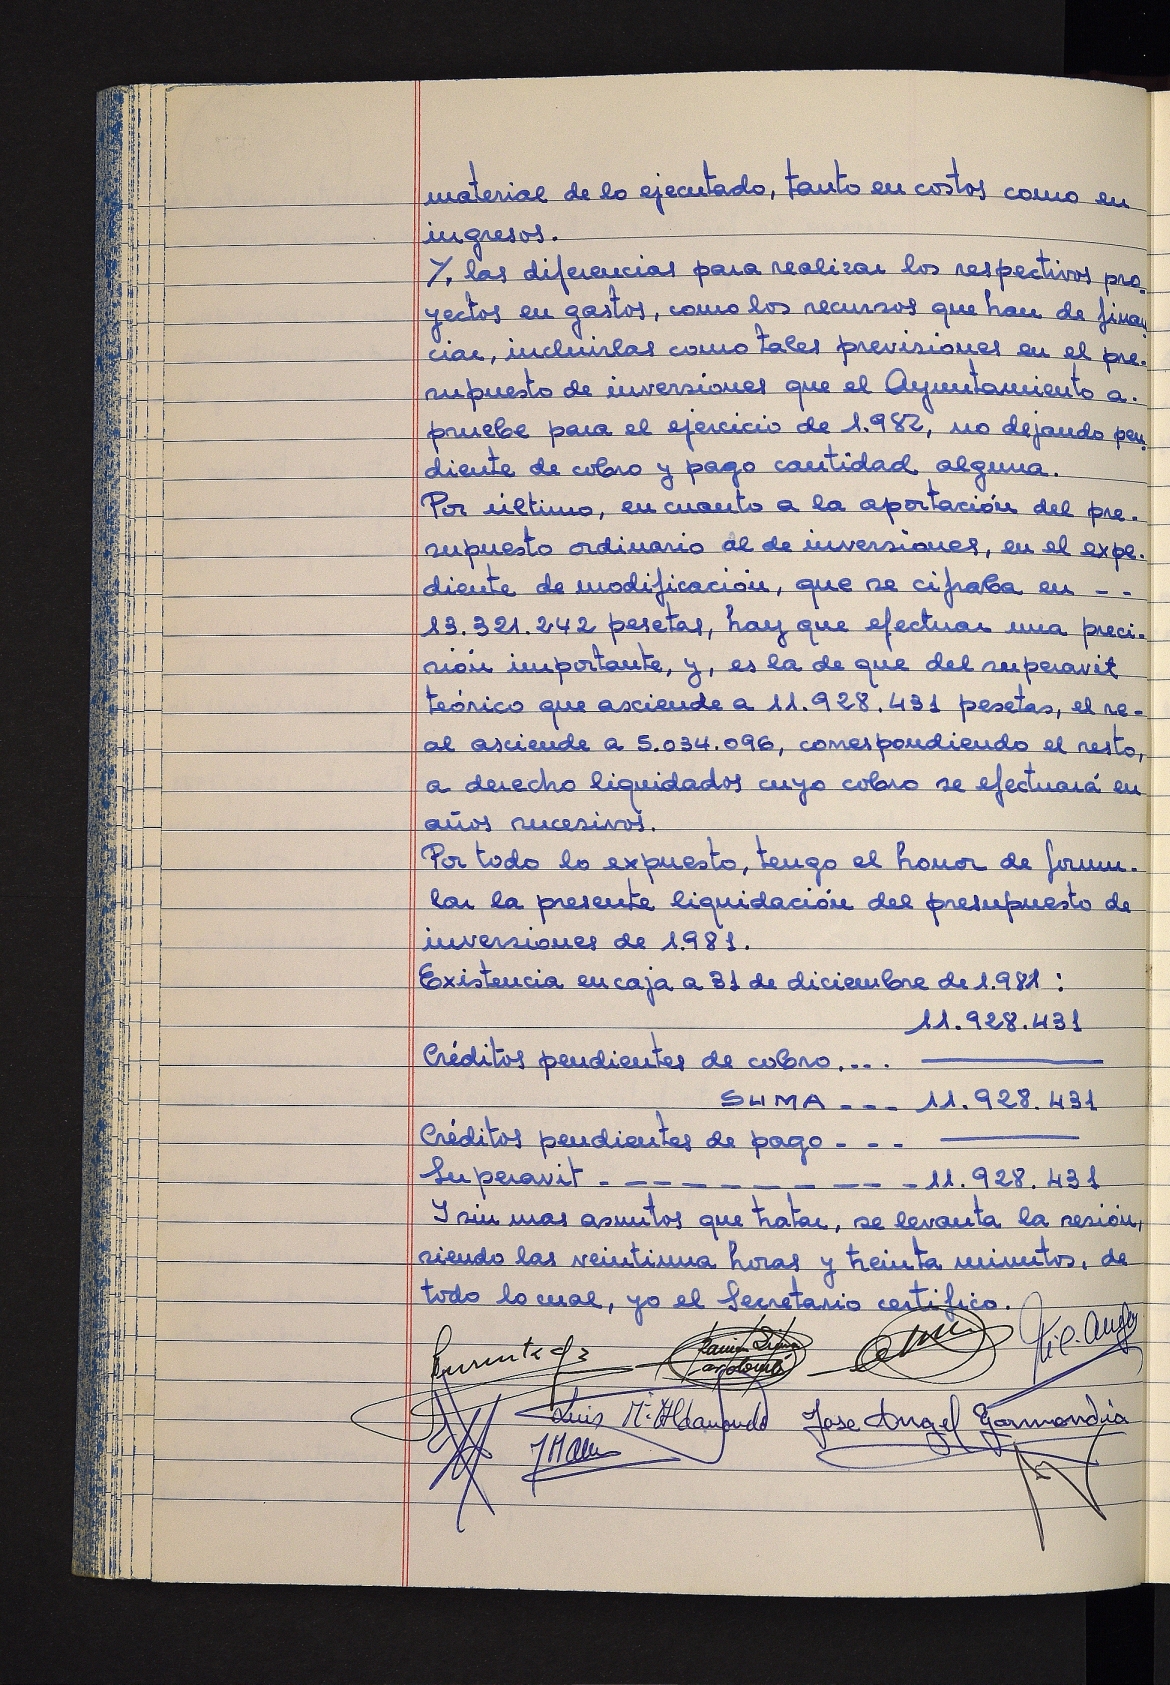 material de lo ejecutado, tanto en costos como en
ingresos.
Y, las diferencias para realizar los respectivos pro-
yectos en gastos, como los recursos que han de finan
ciar, incluirlas como tales previsiones en el pre-
supuesto de inversiones que el Ayuntamiento a-
pruebe para el ejercicio de 1.982, no dejando pen
diente de cobro y pago cantidad alguna.
Por último, en cuanto a la aportación del pre-
supuesto ordinario al de inversiones, en el expe-
diente de modificación, que se cifraba en - -
13.321.242 pesetas, hay que efectuar una preci-
sión importante, y, es la de que del superavit
teórico que asciende a 11.928.431 pesetas, el re-
al asciende a 5.034.096, correspondiendo el resto,
a derecho liquidados cuyo cobro se efectuará en
años sucesivos.
Por todo lo expuesto, tengo el honor de formu-
lar la presente liquidación del presupuesto de
inversiones de 1.981.
Existencia en caja a 31 de diciembre de 1.981 :
11.928.431
Créditos pendientes de cobro....
SUMA - - - 11.928.431
Créditos pendientes de pago - - -
Superavit - - - - - - - - - 11.928.431
Y sin mas asuntos que tratar, se levanta la sesión,
siendo las veintiuna horas y treinta minutos, de
todo lo cual, yo el Secretario certifico.
Luis Mª Aldanondo Jose Angel Garmendia